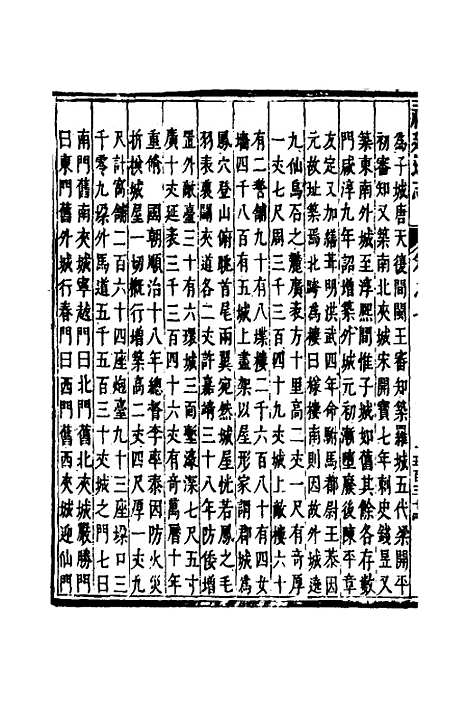 為子城唐天復間閩王審知築羅城五代梁開平
初審知又築南北夾城宋開寶七年刺史錢昱又
築東南外城至淳熙間惟子城如舊其餘各存敵
門咸淳九年詔增築外城元初漸墮廢後陳平章
友定又加繕葺明洪武四年命駙馬都尉王恭因
元故址築焉北跨為樓曰樣樓南則因故外城遶
九仙烏石之麓廣袤方十里高二丈一尺有奇厚
一丈七尺周三千三百四十九丈城上敵樓六十
有二警鋪九十有八堞樓二千六百八十有四女
墻四千八百有五城上盡架以屋形家謂郡城為
鳳穴登山俯眺首尾兩翼宛然城屋恍若鳳之毛
羽表裏闢夾道各二丈許嘉靖三十八年防倭增
置外敵臺三十有六環城三面鑿濠深七尺五寸
廣十丈延袤三千三百四十六丈有奇萬曆十年
重脩 國朝順治十八年總督李率泰因防火災
折換城屋一切概行增築高二丈四尺厚一丈九
尺計窩鋪二百六十四座炮臺九十三座垜口三
千零九垜外馬道五千五百三十丈城之門七曰
南門舊南夾城寧越門曰北門舊北夾城嚴勝門
曰東門舊外城行春門曰西門舊西夾城迎仙門